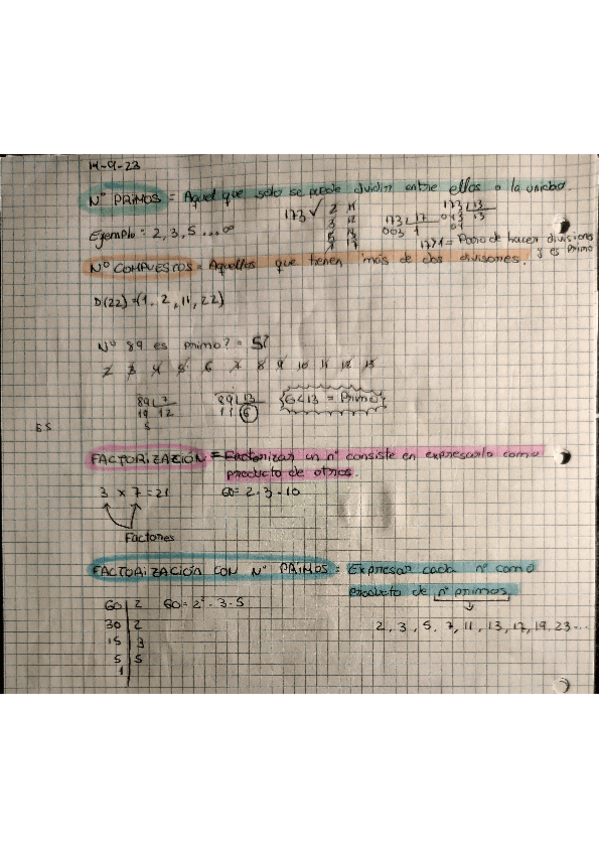 14-9-23
Nº PRIMOS = Aquel que solo se puede dividir entre ellos o la unidad.
173 ✓ 2 11
3 13
5 13
7 17
173 | 17
003 1
173 | 13
043 13
04
Ejemplo = 2, 3, 5 ... ∞
17>1 = Paro de hacer divisiones y es primo
Nº COMPUESTOS = Aquellos que tienen más de dos divisores.
D(22) = (1, 2, 11, 22)
Nº 89 es primo? = Sí
2 3 4 5 6 7 8 9 10 11 12 13
89 | 7
19 12
5
89 | 13
11 6
6<13 = Primo
FACTORIZACIÓN = Factorizar un nº consiste en expresarlo como
producto de otros.
3 x 7 = 21
60 = 2 · 3 · 10
Factores
FACTORIZACIÓN CON Nº PRIMOS = Expresar cada nº como
producto de nº primos
60 | 2
30 | 2
15 | 3
5 | 5
1
60 = 2² · 3 · 5
2, 3, 5, 7, 11, 13, 17, 19, 23 ...